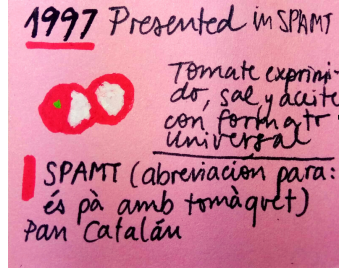 1997 Presented in SPAMT
Tomate exprimi-
do, sal, y aceite
con formato
universal
SPAMT (abreviacion para:
és pà amb tomàquet)
Pan Catalán